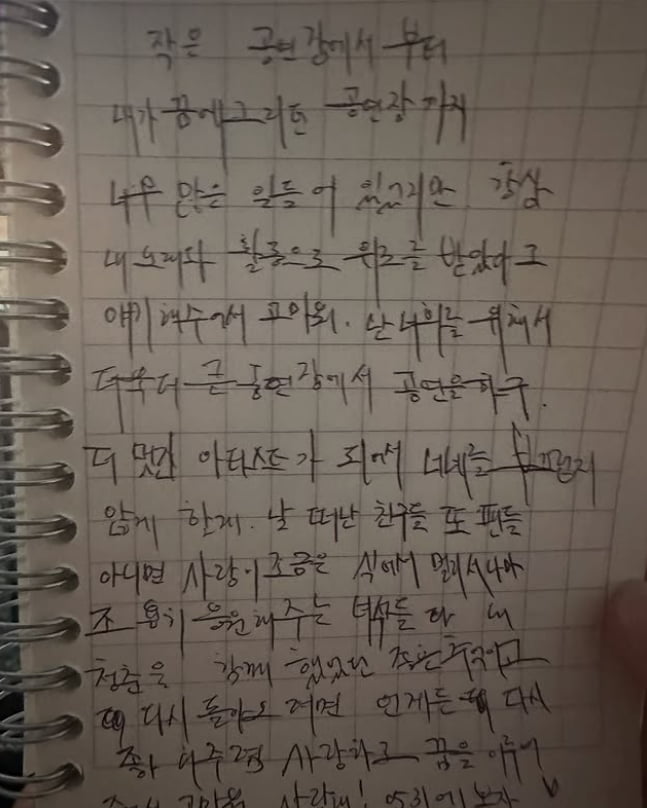 작은 공연장에서 부터
내가 꿈에 그리던 공연장 까지
너무 많은 일들이 있었지만 항상
내 노래와 활동으로 위로를 받았다고
얘기해주어서 고마워. 난 너희를 위해서
더욱더 큰 공연장에서 공연을 하구.
더 멋진 아티스트가 되어서 너네를 부끄럽지
않게 할게. 날 떠난 친구들 또 팬들
아니면 사랑이 조금은 식어서 멀리서나마
조용히 응원해주는 녀석들 다 내
청춘을 함께 했었던 좋은 추억이고
다시 돌아오려면 언제든 다시
좋아해주렴 사랑하고 꿈을 이루어
고마워 사랑해!